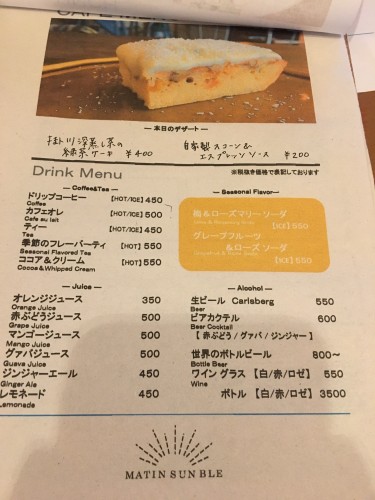 CAFE MENU
— 本日のデザート —
掛川深蒸し茶の
緑茶ケーキ ¥400
自家製スコーン&
エスプレッソソース ¥200
Drink Menu
※税抜き価格で表記しております
— Coffee&Tea —
ドリップコーヒー [HOT/ICE] 450
Coffee
カフェオレ [HOT/ICE] 500
Cafe au lait
ティー [HOT/ICE] 450
Tea
季節のフレーバーティ [HOT] 550
Seasonal Flavored Tea
ココア&クリーム [HOT] 550
Cocoa&Whipped Cream
— Seasonal Flavor —
梅&ローズマリー ソーダ
[ICE] 550
グレープフルーツ
&ローズ ソーダ
[ICE] 550
— Juice —
オレンジジュース 350
Orange Juice
赤ぶどうジュース 500
Grape Juice
マンゴージュース 500
Mango Juice
グァバジュース 500
Guava Juice
ジンジャーエール 450
Ginger Ale
レモネード 450
Lemonade
— Alcohol —
生ビール Carlsberg 550
Beer
ビアカクテル 600
Beer Cocktail
【 赤ぶどう / グァバ / ジンジャー 】
世界のボトルビール 800~
Bottle Beer
ワイン グラス 【白/赤/ロゼ】 550
Wine
ボトル 【白/赤/ロゼ】 3500
MATIN SUN BLE